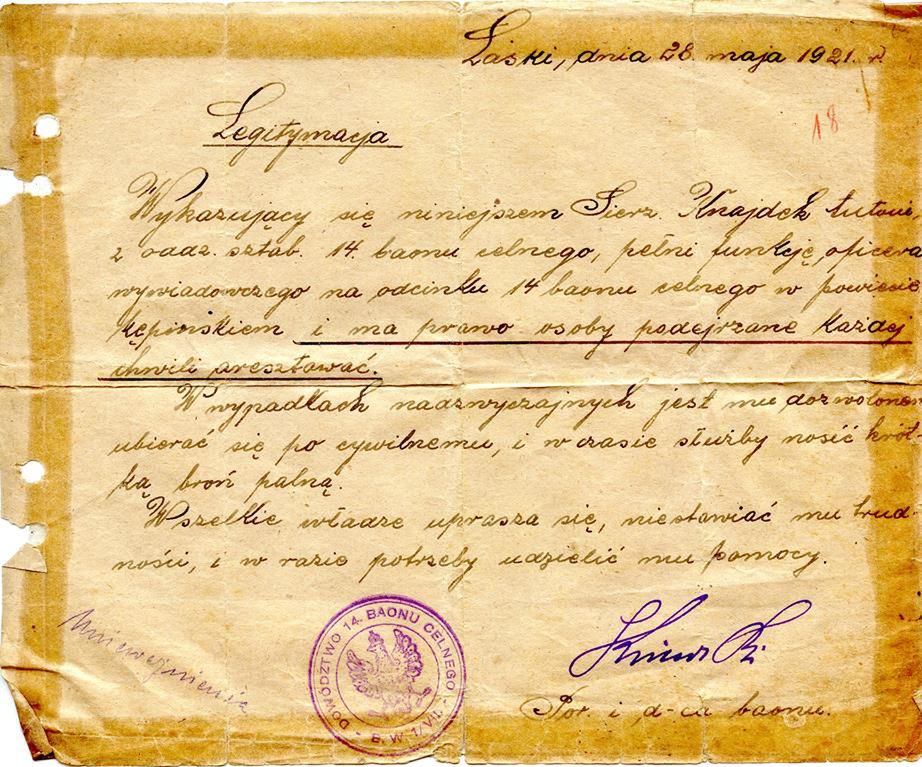 Łaski, dnia 28. maja 1921. r.
18
Legitymacja
Wykazujący się niniejszem Sierz. Knajdek
z oddz. sztab. 14. baonu celnego, pełni funkcję oficera
wywiadowczego na odcinku 14 baonu celnego w powiecie
kępińskiem i ma prawo osoby podejrzane każdej
chwili aresztować.
W wypadkach nadzwyczajnych jest mu dozwolonem
ubierać się po cywilnemu, i w czasie służby nosić krót-
ką broń palną.
Wszelkie władze uprasza się, niestawiać mu trud-
ności, i w razie potrzeby udzielić mu pomocy.
Unieważnienia
DOWÓDZTWO 14. BAONU CELNEGO
B. W. 1/VII.
Por. i d-ca baonu.